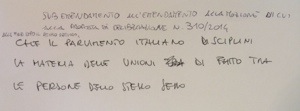 SUB EMENDAMENTO ALL'EMENDAMENTO ALLA MOZIONE DI CUI
ALLA PROPOSTA DI DELIBERAZIONE N. 310/2014
CHE IL PARLAMENTO ITALIANO DISCIPLINI
LA MATERIA DELLE UNIONI DI FATTO TRA
LE PERSONE DELLO STESSO SESSO